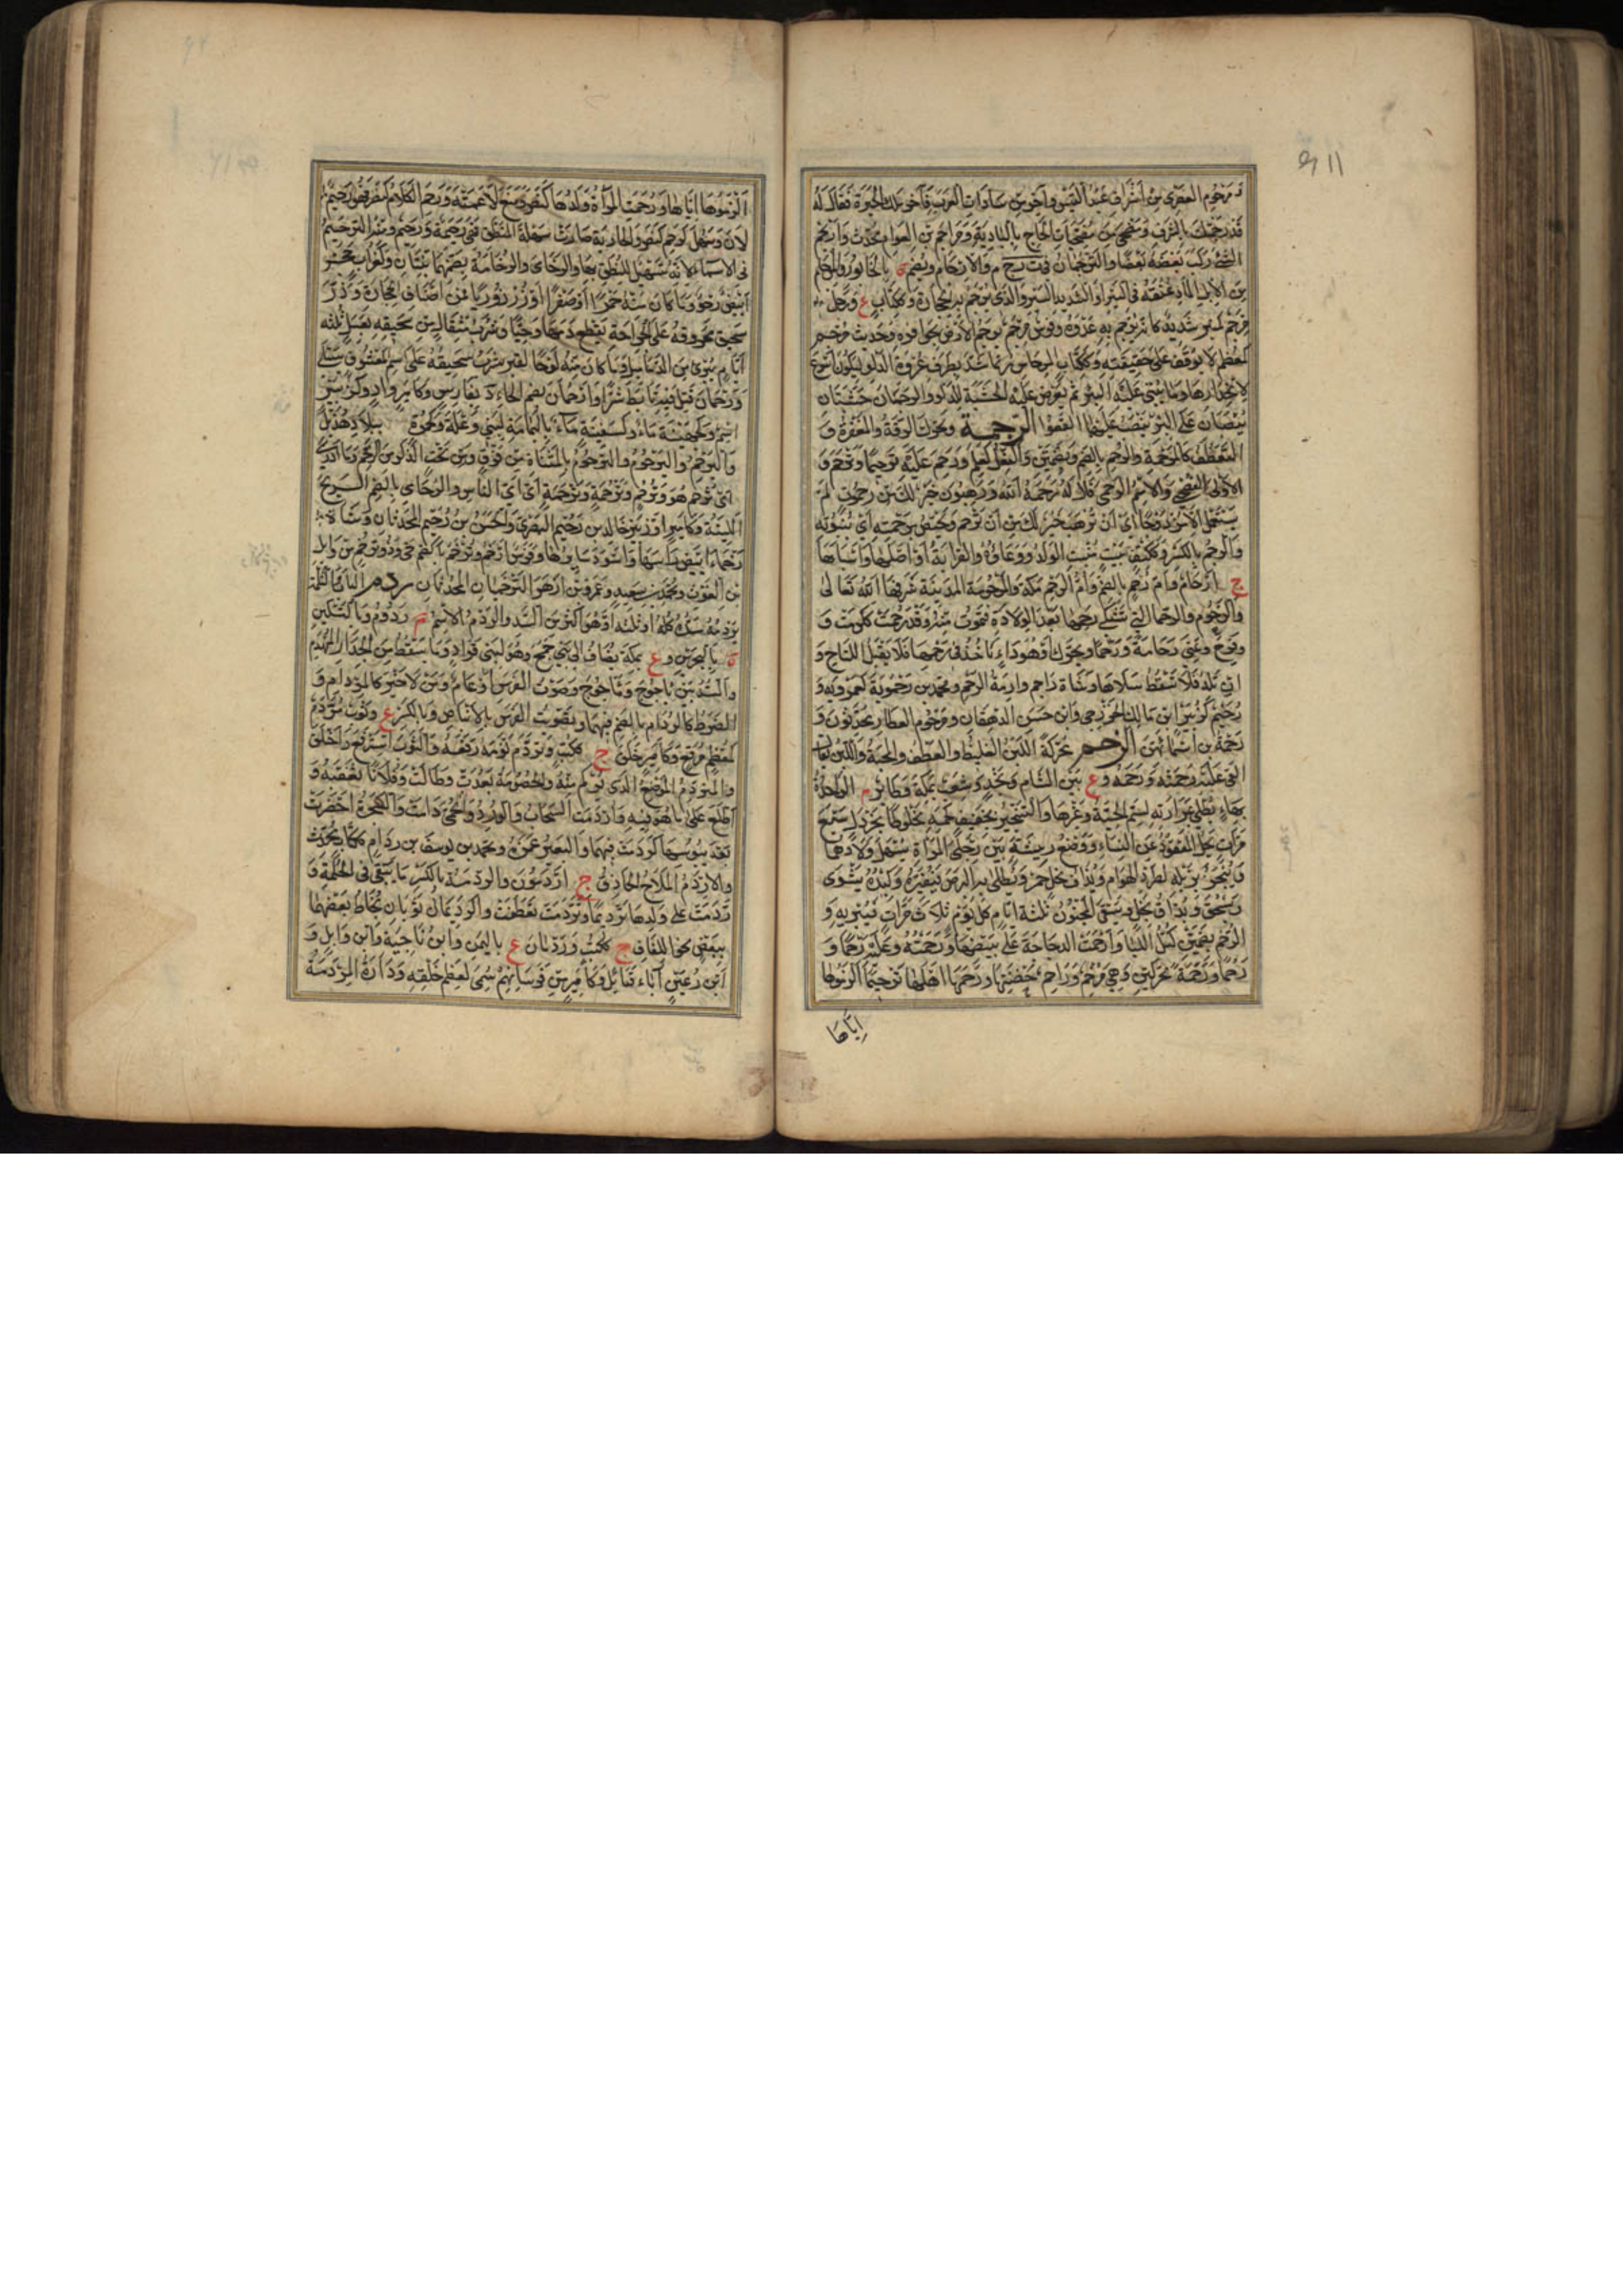 ومرجوم العصري من أشراف عبد القيس وآخر من سادات العرب فاخر ملك الحيرة فقال له
قد رجمتك بالشرف ومضحى من مضحيات الحاج بالبادية ومراجم بن العوام محدث وارتجم
الشئ ركب بعضه بعضا والترجمان في ت ر ج م والارجام ويضم ة بالخابور والمرجم
من الابل الماد عنقه في السير او الشديد السير والذي ترجم به الحجارة وككتاب ع ورجل
مرجم كمنبر شديد كانه يرجم به عدوه وفرس مرجم يرجم الارض بحوافره وحديث مرجم
كمعظم لا يوقف على حقيقته وككتاب المرجاس ربما شد بطرف عرقوة الدلو ليكون اسرع
لانحدارها وما يبنى على البئر ثم تعرض عليه الخشبة للدلو والرجامان خشبتان
ينصبان على البئر ينصب عليهما القعو الرحمة ويحرك الرقة والمغفرة و
التعطف كالمرحمة والرحم بالضم وبضمتين والفعل كعلم ورحم عليه ترحيما وترحم و
الاولى الفصحى والاسم الرحمى قال له رحمه الله ورهبوت خير لك من رحموت لم
يستعمل الا مزدوجا اي ان ترهب خير لك من ان ترحم ويختص برحمته اي بنبوته
والرحم بالكسر وككتف بيت منبت الولد ووعاؤه والقرابة او اصلها واسبابها
ج ارحام وام رحم بالضم وام الرحم مكة والمرحومة المدينة شرفها الله تعالى
والرحوم والرحماء التي تشتكي رحمها بعد الولادة فتموت منه وقد رحمت ككرمت و
وفرح وعنى رحامة ورحما ويحرك او هو داء ياخذ في رحمها فلا يقبل اللقاح و
ان تلد فلا تسقط سلاها وشاة راحم وارمة الرحم ومحمد بن رحمويه كعمرويه و
رحيم كزبير ابن مالك الخزرجي وابن حسن الدهقان ومرحوم العطار محدثون و
رحمة من اسمائهن الرخم محركة اللبن الغليظ والعطف والمحبة واللين يقال
القى عليه رخمته ورخمه و ع بين الشام ونجد وشعب بمكة وطائر م الواحدة
بهاء يطلى بمرارته لسم الحية وغيرها والتبخير بجفيف لحمه مخلوطا بخردل سبع
مرات يحل المعقود عن النساء ووضع ريشة بين رجلي المراة يسهل ولادها
ويبخر بزبله لطرد الهوام ويداف بخل خمر ويطلى به البرص فيغيره وكبده يشوى
ويسحق ويداف بخل ويسقى المجنون ثلثة ايام كل يوم ثلاث مرات فيبريه و
الرخم بضمتين كتل اللبا وارخمت الدجاجة على بيضها ورخمته وعليه رخما و
رخما ورخمة محركتين وهي مرخم وراخم حضنتها ورخمها اهلها ترخيما الزموها
اياها
الزموها اياها ورخمت المراة ولدها كنصر ومنع لاعبته ورخم الكلام ككرم ونصر فهو رخيم
لان وسهل كرخم كنصر والجارية صارت سهلة المنطق فهي رخيمة ورخيم ومنه الترخيم
في الاسماء لانه تسهيل للنطق بها والرخامى والرخامة بضمهما نبتان وكغراب حجر
ابيض رخو وما كان منه خمريا او صفرا او زرزوريا فمن اصناف الحجارة وذر
سحيق محروقه على الجراحة يقطع دمها وحيا وشرب مثقال من سحيقه بعسل ثلثة
ايام يبرئ من الدماميل وما كان منه لوحا لقبر شرب سحيقه على اسم المعشوق يسلى
ورخمان قبل فيه تابط شرا وارخمان بضم الخاء د بفارس وكامير واد وكزبير
اسم وكجهينة ماء وكسفينة ماء باليمامة لبني وعلة وكحمزة ببلاد هذيل
واليرخم واليرخوم والترخوم بالمثناة من فوق ومن تحت الذكر من الرخم وما ادري
اي ترخم هو وترخم وترخمة وترخمة اي اي الناس والرخامى بالضم الريح
اللينة وكامير او زبير خالد بن رخيم البصري والحسن بن رخيم المحدثان وشاة
رخماء ابيض راسها واسود سايرها وفرس ارخم وترخم بالضم حي وذو ترخم بن وايل
بن الغوث ومحمد بن سعيد وعمرو بن ازهر الترخميان المحدثان ردم الباب والثلمة
يردمه سده كله او ثلثه او هو اكثر من السد والردم الاسم ج ردوم وبالتسكين
ة بالبحرين و ع بمكة يضاف الى بني جمح وهو لبني قراد وما يسقط من الجدار المتهدم
والسد بين ياجوج وماجوج وصوت القوس او عام ومن لا خير كالمردام و
الضرط كالردام بالضم فيهما وتصويت القوس بالانباض وبالكسر ع وثوب مردم
كمعظم مرقع وكامير خلق ج ككتب وتردم ثوبه رقعه والثوب استرقع واخلق
والمتردم الموضع الذي يرقع منه والخصومة بعدت وطالت وفلانا تعقبه و
اطلع على ما هو فيه واردمت السحاب والورد والحمى دامت والشجرة اخضرت
بعد يبوسها كردمت فيهما والبعير غمزه ومحمد بن يوسف بن ردام ككتاب محدث
والاردم الملاح الحاذق ج اردمون والردمة بالكسر ما يبقى في الجلة و
تردمت على ولدها ترديما وتردمت تعطفت والردمان ثوبان يخاط بعضهما
ببعض نحو اللفاف ج ككتب وردمان ع باليمن وابن ناجية وابن وايل و
ابن رعين آباء قبائل وكامير من فرسانهم سمي لعظم خلقه ودارة المردمة